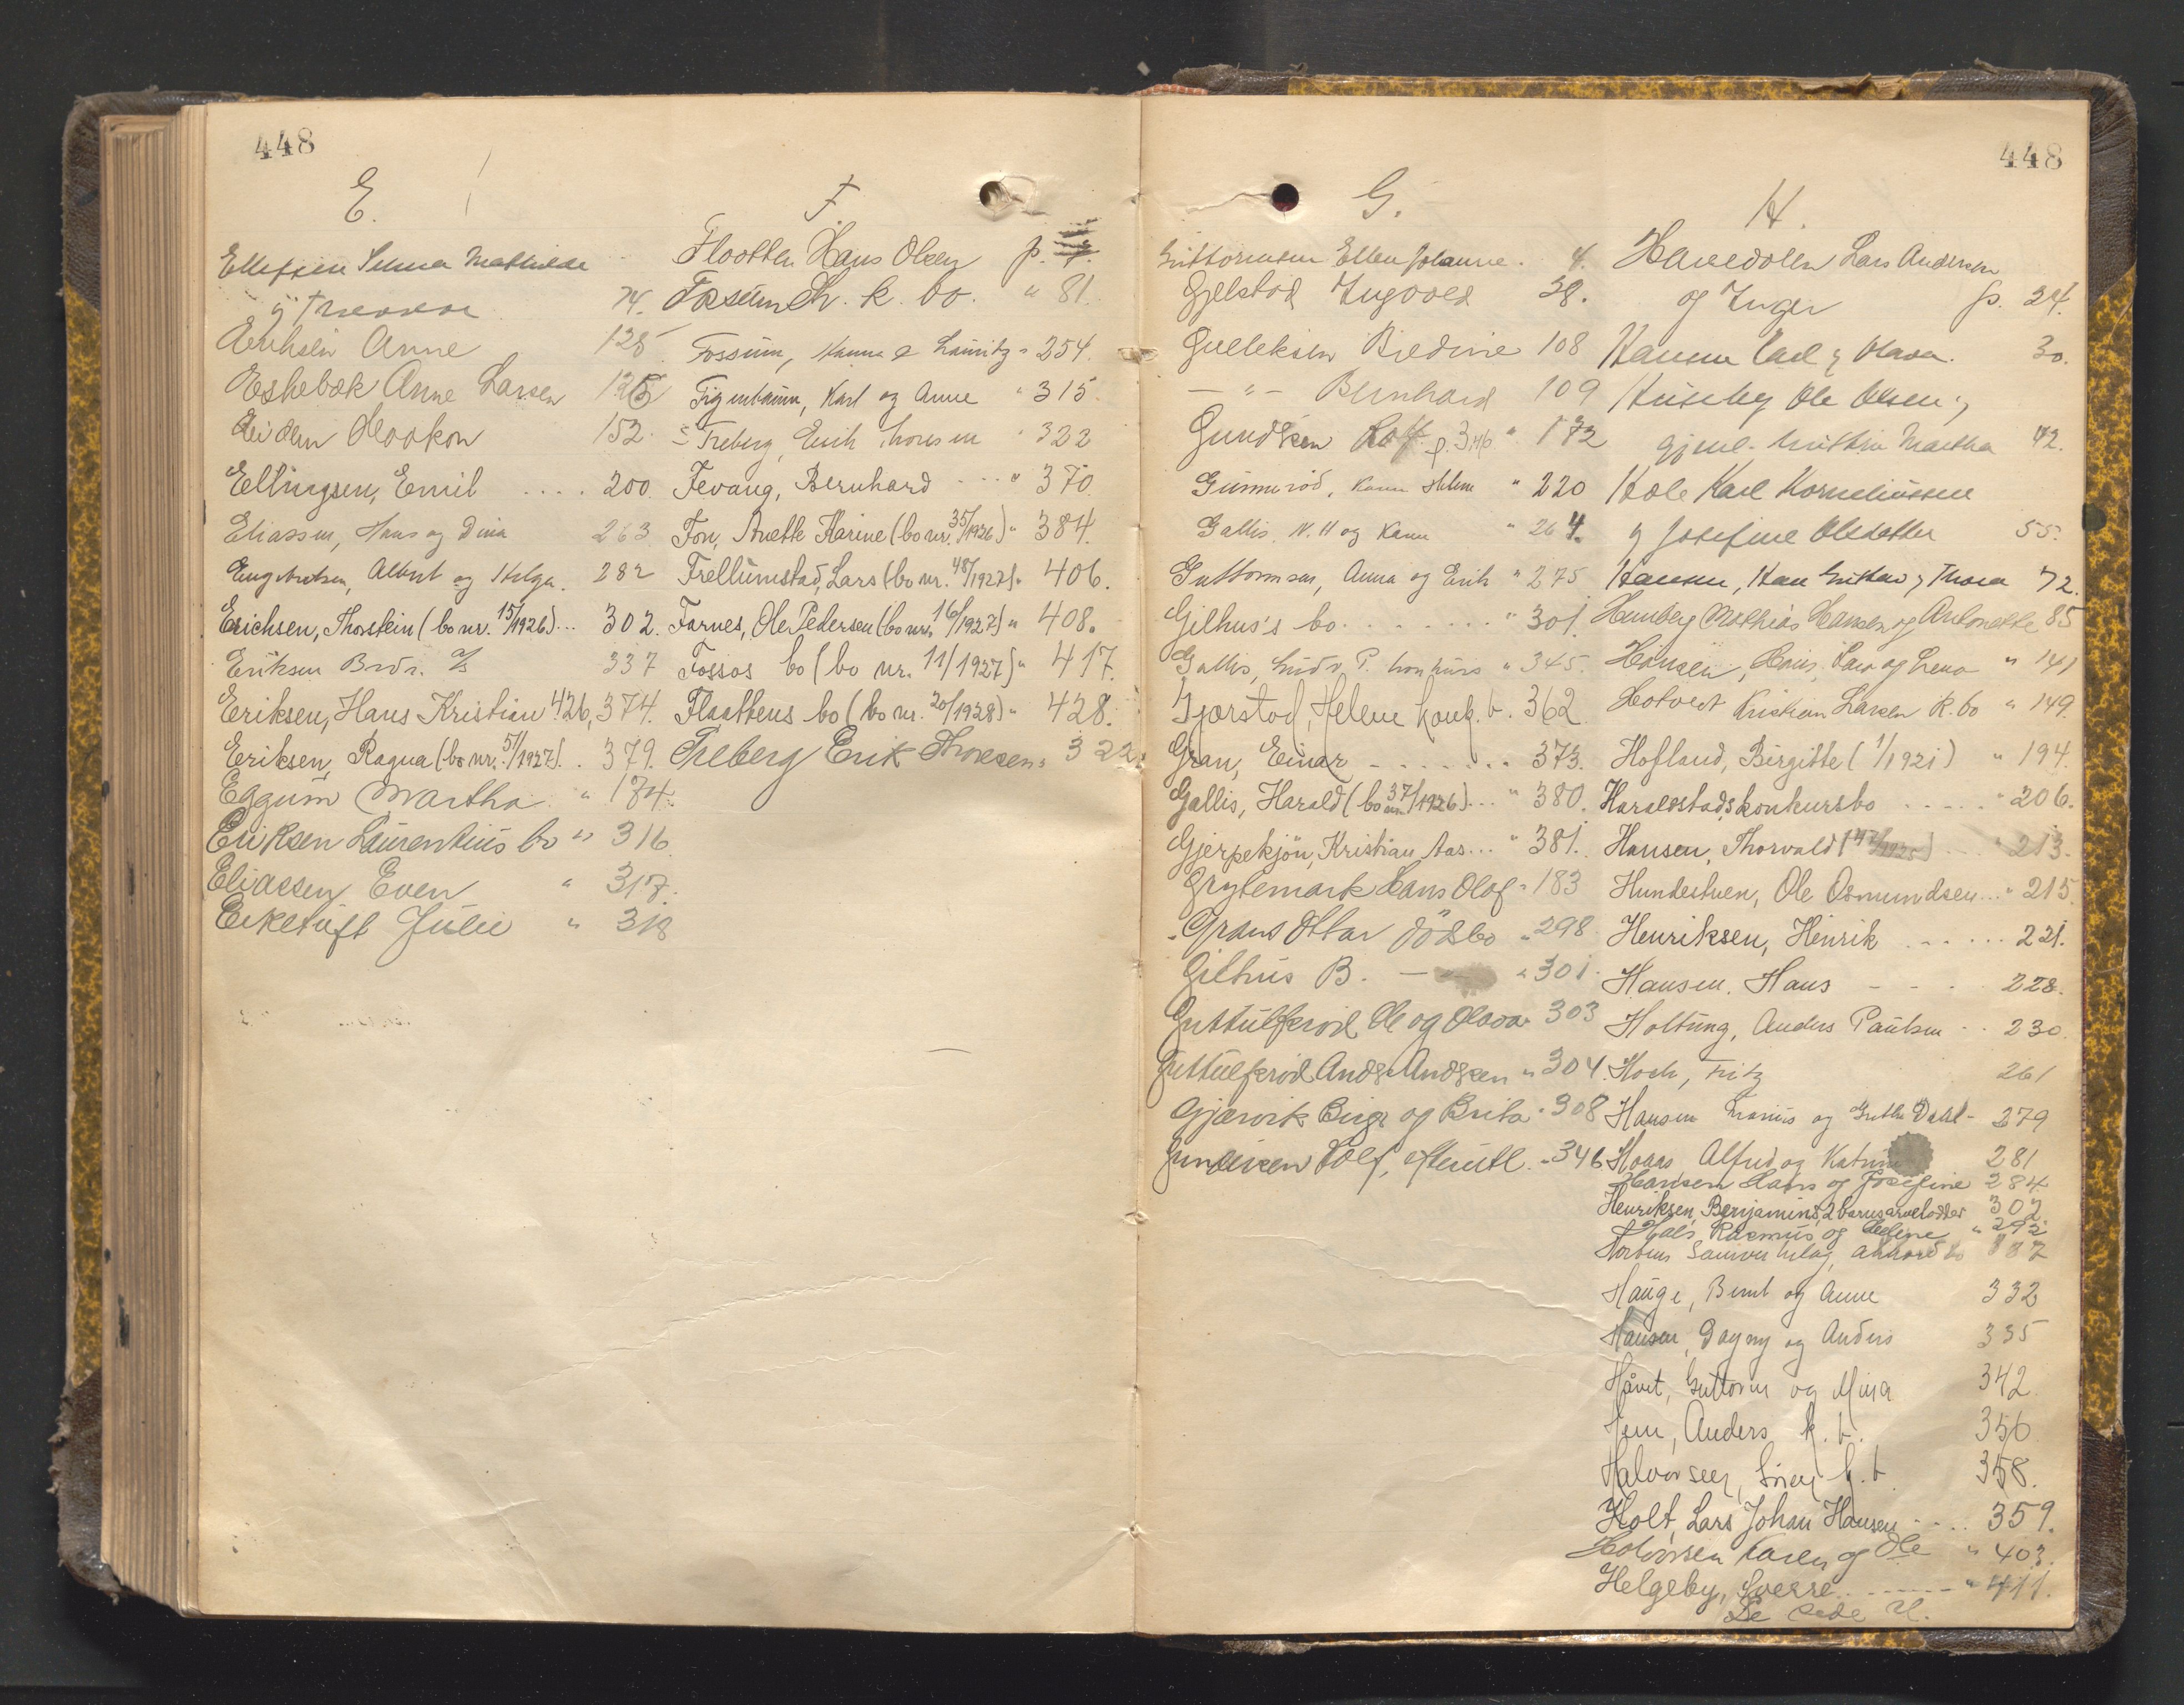 448
E.
Ellefsen Selma Mathilde
74.
Anne 125
Eskebæk Anne Larsen 126
Eiden Haakon 152.
Ellingsen, Emil .... 200.
Eliassen, Hans og Dina 263
Engebretsen, Albert og Helga. 282
Erichsen, Thorstein (bo nr. 15/1926)... 302.
Eriksen Brdr. 337
Eriksen, Hans Kristian 426, 374.
Eriksen, Ragna (bo nr. 51/1927). . 379.
Eggum Martha " 174.
Eriksen Laurentius bo " 316
Eliassen Even " 317.
Eiketuft Julie " 318
F.
Flaatten Hans Olsen p.
Fossum Chr. k. bo. " 81.
Fossum, Hanna & Lauritz " 254.
Figenbaum, Karl og Anne " 315.
Freberg, Erik Thoresen " 322
Fevang, Bernhard ... " 370.
Fon, Anette Karine (bo nr. 35/1926) " 384.
Frellumstad, Lars (bo nr. 48/1927) " 406.
Farnes, Ole Pedersen (bo nr. 16/1927) " 408.
Fossos bo (bo nr. 11/1927) " 417.
Flaattens bo (bo nr. 20/1928) " 428.
Freberg Erik Thoresen " 322.
448
G.
Guttormsen Ellen Johanne. 4.
Gjelstad Ingvald 38.
Gulliksen Bredine 108
— " — Bernhard 109
Gundersen Rolf p. 346 " 172
Gunnerød, Karen Helene " 220
Gallis, N. H og Karen " 264.
Guttormsen, Anna og Erik " 275
Gilhus's bo. . . . . . . . " 301.
Gallis, Gudr. P. konkurs " 345.
Gjærstad, Helene konk. b. 362
Gran, Einar - . . . . . . 373.
Gallis, Harald (bo nr. 37/1926)... " 380.
Gjerpekjøn, Kristian Aas... " 381.
Grytemark Hans Olaf " 183
Grans Ottar dødsbo " 298
Gilhus B. — " 301.
Guttulfsrød Ole og Olava " 303
Guttulfsrød Anders Andersen " 304.
Gjærvik Birger og Brita " 308
Gundersen Rolf, " 346
H.
Hanedalen Lars Andersen
og Inger p. 24.
Hansen Carl og Olava. 30.
Huseby Ole Olsen og
Martha 42.
Hole Karl Korneliussen
og Josefine Olsdatter 55.
Hansen, Hans Gustav og Thora 72.
Hunberg Mathias Hansen og Antonette 85
Hansen, Hans, Lars og Lena " 141
Hotvedt Kristian Larsen k. bo " 149.
Hofland, Birgitte (1/1921) " 194.
Haraldstads konkursbo ..... " 206.
Hansen, Thorvald " 213.
Hundestuen, Ole Osmundsen... " 215.
Henriksen, Hinrik ..... 221.
Hansen, Hans - - - 228.
Holtung, Anders Paulsen .. 230.
Hoch, Fritz 261
Hansen Marius og Dahl - 279
Haaas, Alfred og Katrine 281
Hansen Hans og Josefine 284
Henriksen, Benjamins, 2 barns arvelodder 302
Hals, Rasmus og Helene " 292
Hortens Samvirkelag, akkord bo 337
Hauge, Bernt og Anne 332
Hansen, Dagny og Anders 335
Håvet, Guttorm og Mina 342
Hem, Anders k. b. 356
Halvorsen, Søren k. b. 358.
Holt, Lars Johan Hansen .... 359.
Halvorsen Karen og Ole " 403.
Helgeby, Sverre. ------ " 411.
Se side